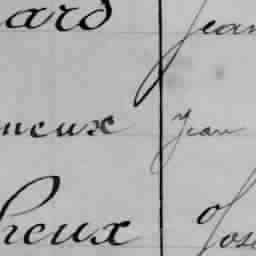 ard Jean
meux Jean
heux Jose